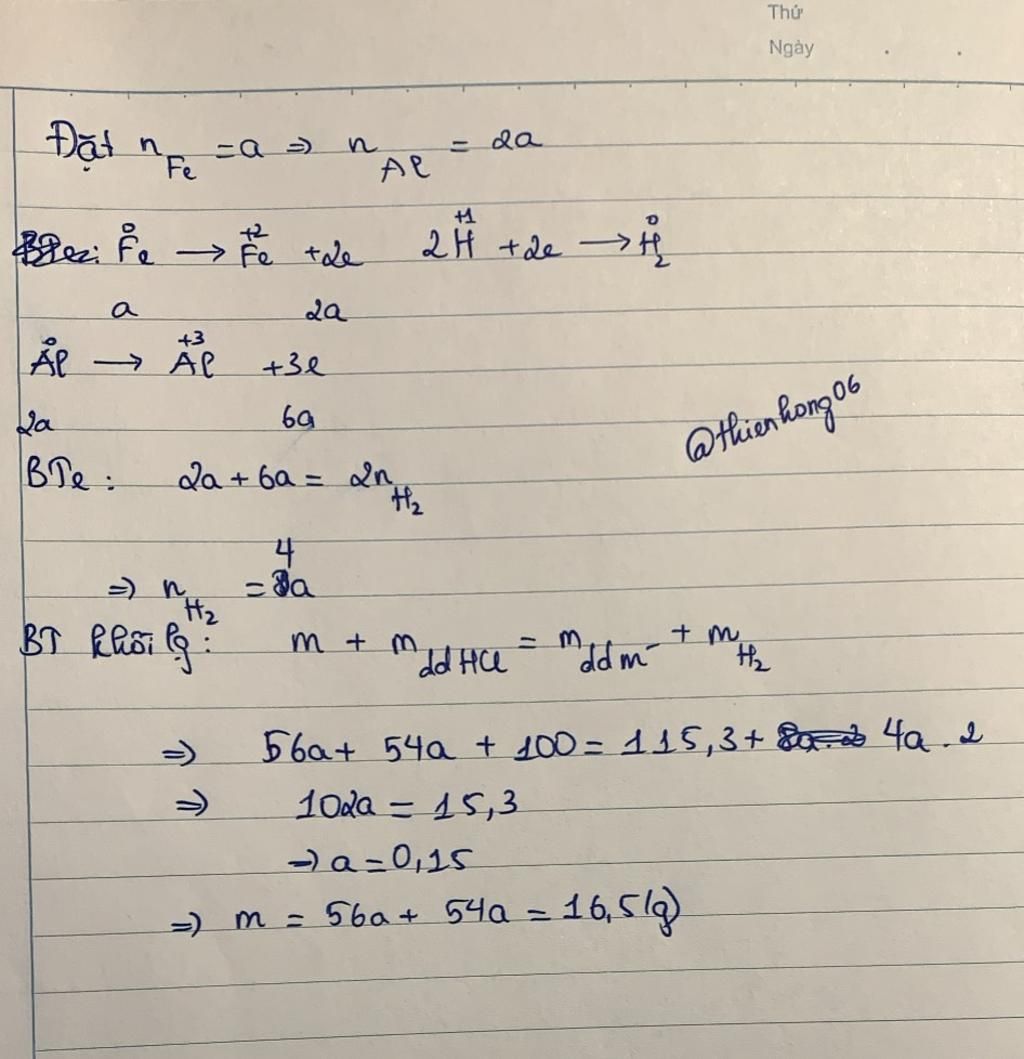 Thứ
Ngày
Đặt n Fe = a => n Al = 2a
Fe⁰ → Fe⁺² + 2e 2H⁺¹ + 2e → H₂⁰
a 2a
Al⁰ → Al⁺³ + 3e
2a 6a
@thienhong06
BTe : 2a + 6a = 2n H₂
4
=> n H₂ = a
BT khối lg : m + m ddHCl = m dd m⁻ + m H₂
=> 56a + 54a + 100 = 115,3 + 4a . 2
=> 102a = 15,3
→ a = 0,15
=> m = 56a + 54a = 16,5 (g)